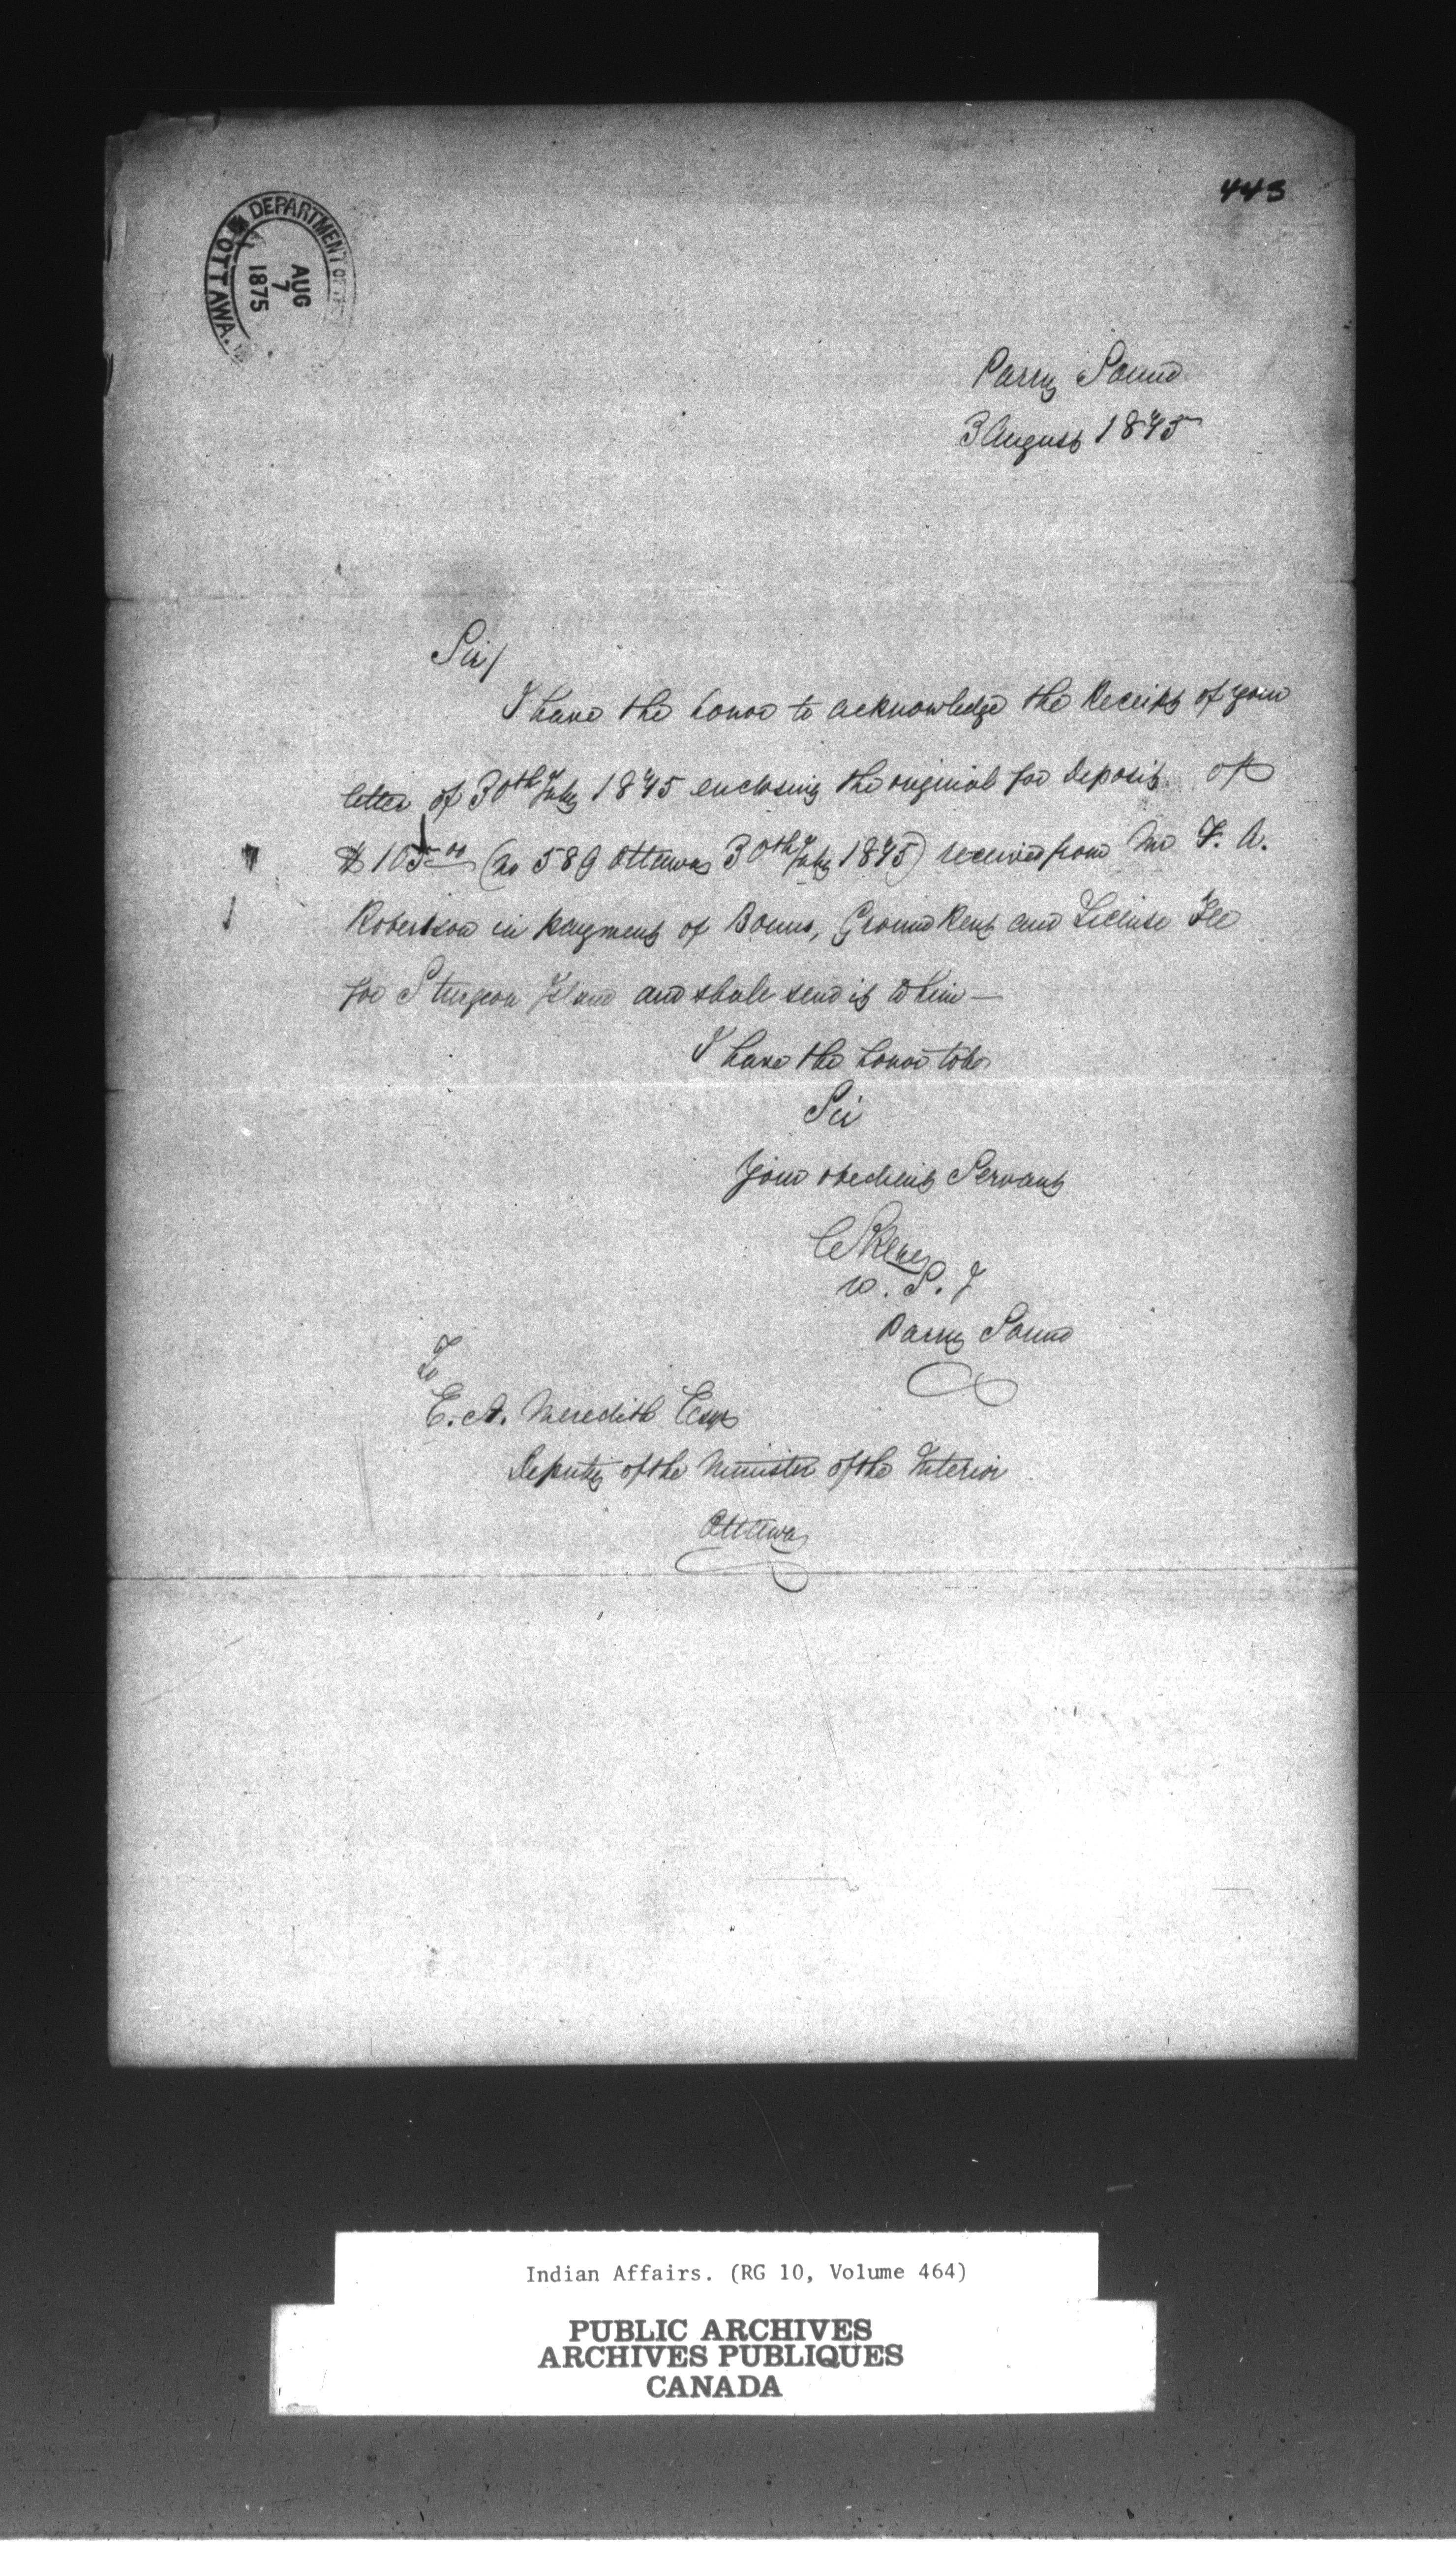 443
DEPARTMENT OF
OTTAWA.
AUG
7
1875
Parry Sound
3 August 1875
Sir/
I have the honor to acknowledge the Receipt of your
letter of 30th July 1875 enclosing the original for deposit of
$105.00 (no 589 Ottawa 30th July 1875) received from Mr F. A.
Robertson in payment of Bonus, Ground Rent and License Fee
for Sturgeon Island and shall send it to him —
I have the honor to be
Sir
Your obedient Servant
C Skene
V. S. I
Parry Sound
To
E. A. Meredith Esqr
Deputy of the Minister of the Interior
Ottawa
Indian Affairs. (RG 10, Volume 464)
PUBLIC ARCHIVES
ARCHIVES PUBLIQUES
CANADA